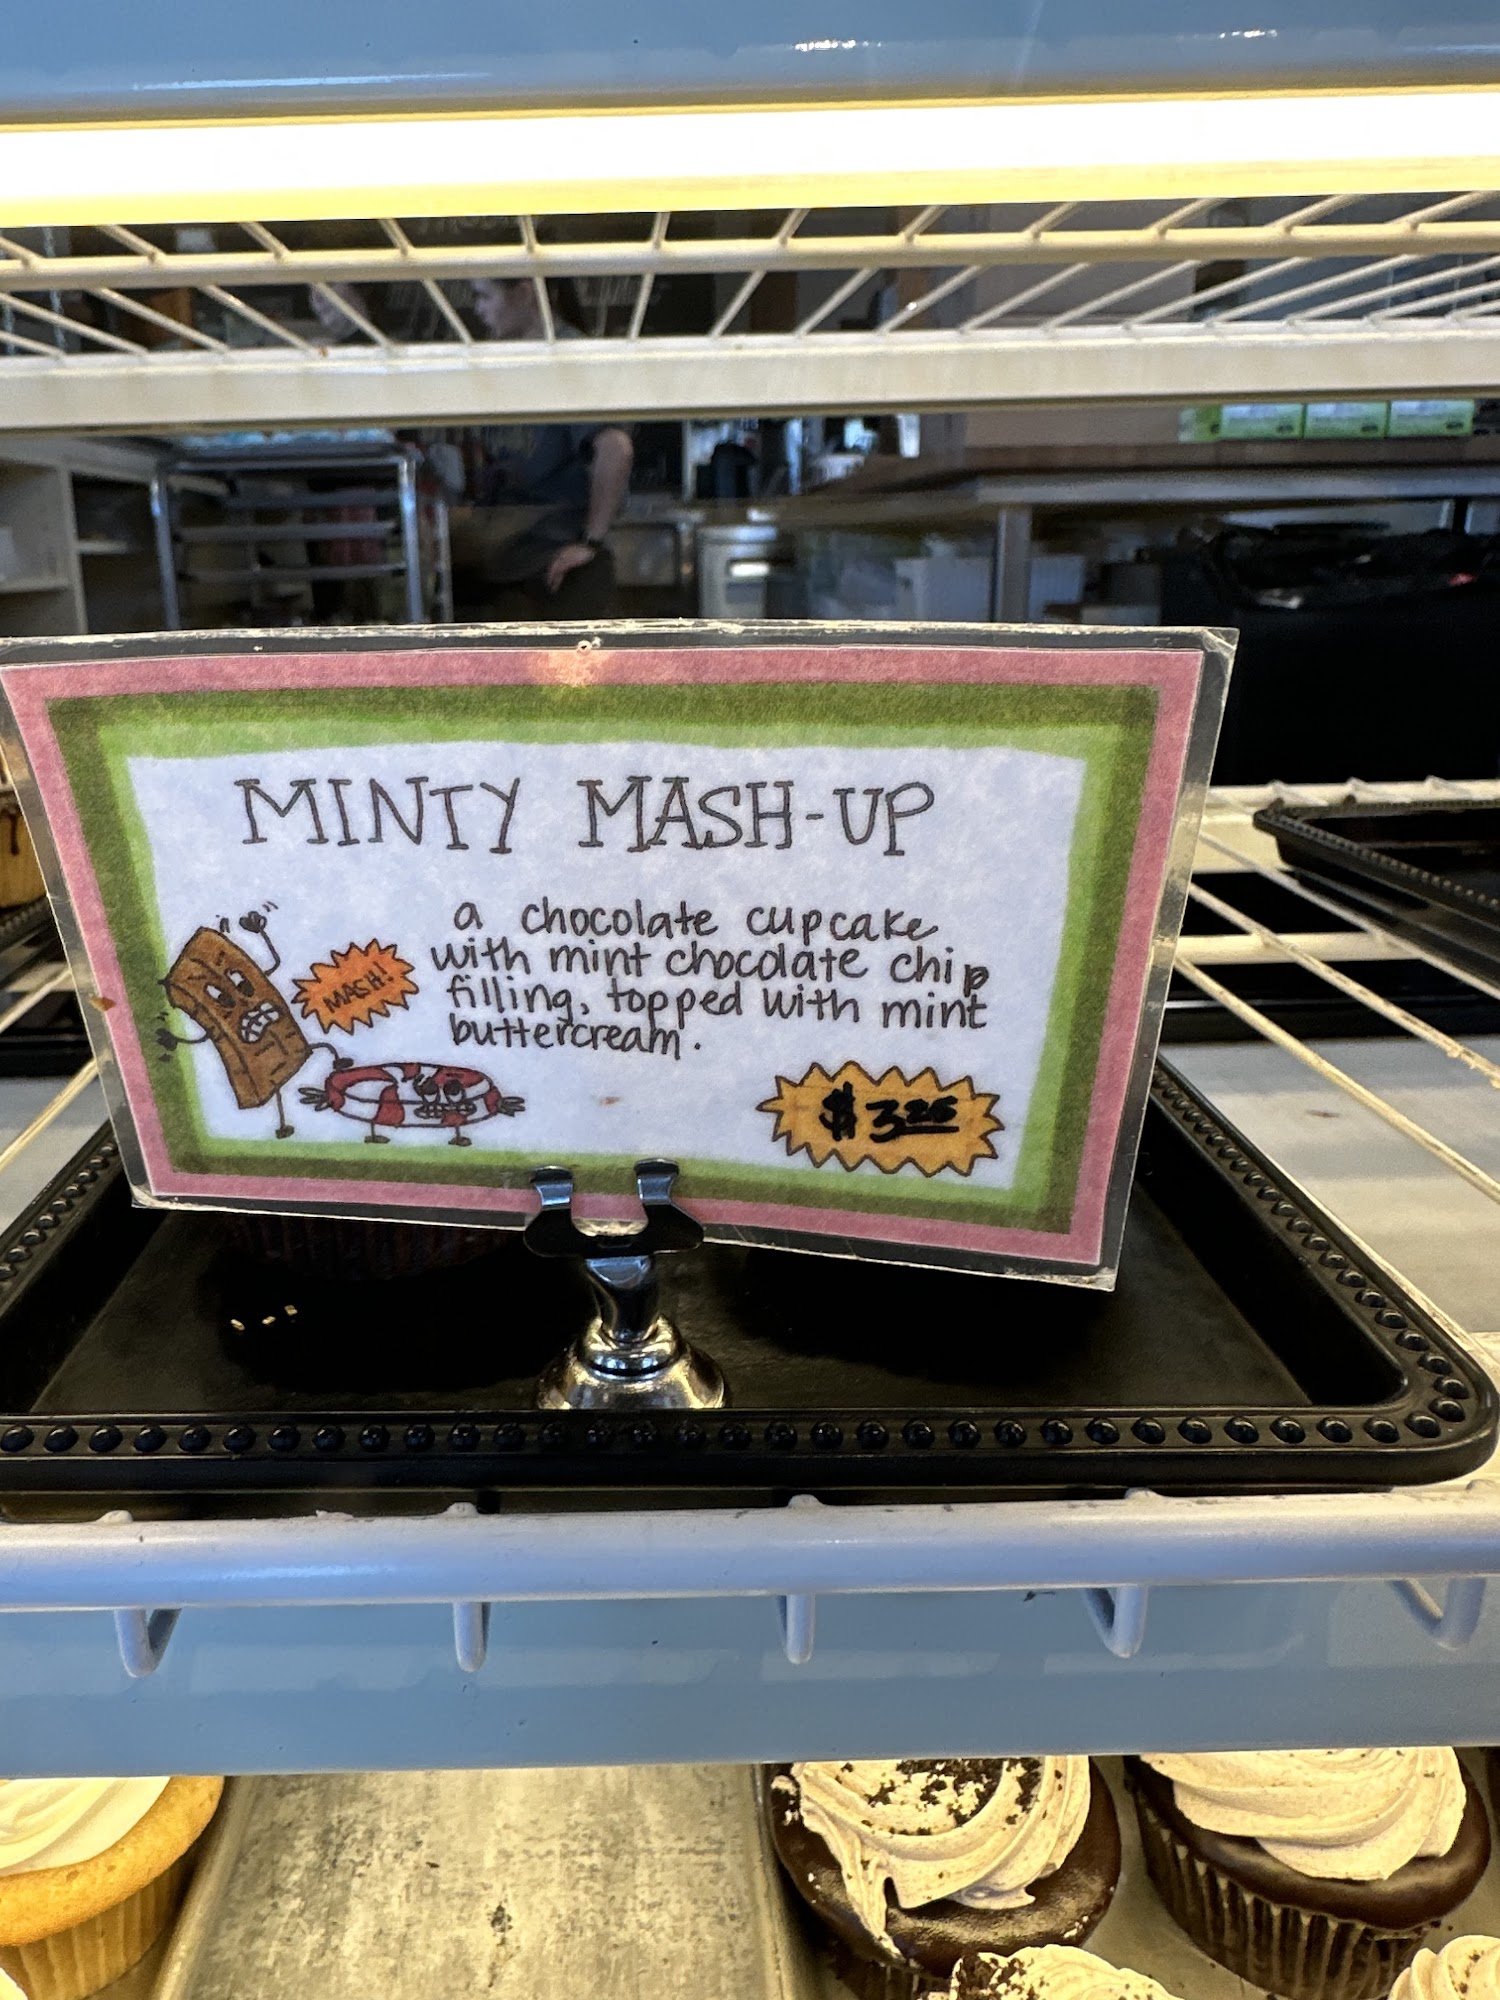 MINTY MASH-UP
a chocolate cupcake
with mint chocolate chip
filling, topped with mint
buttercream.
MASH!
$3.25